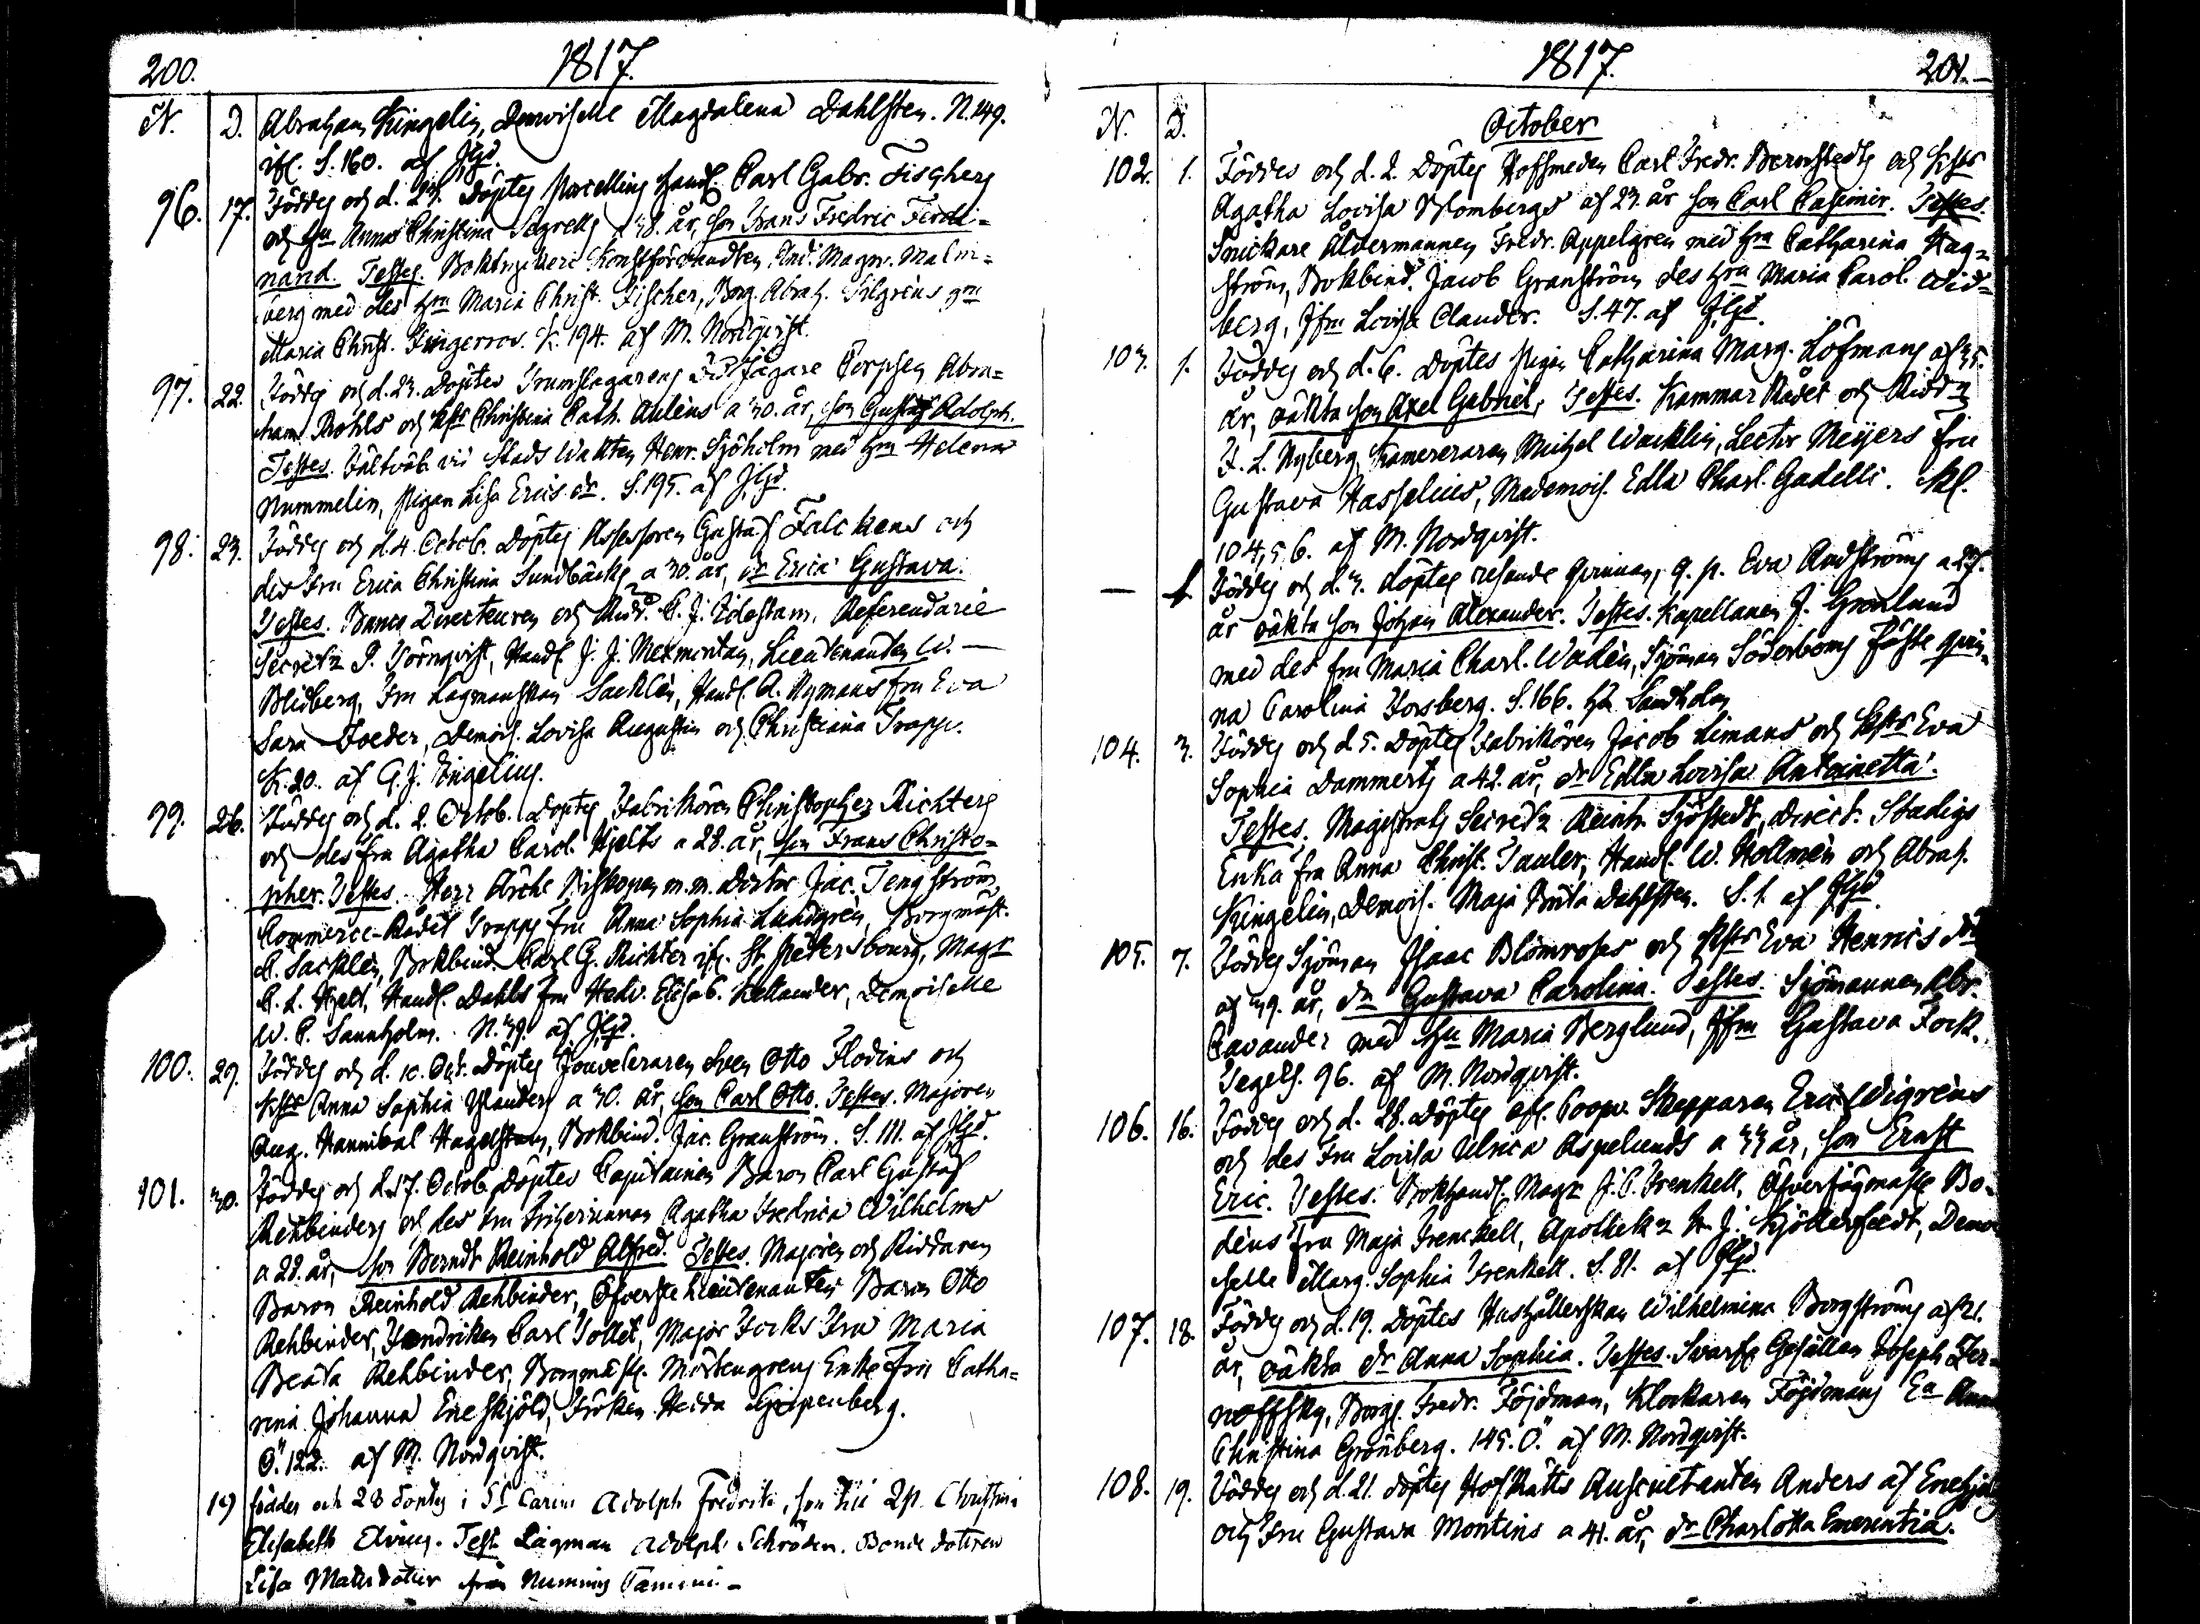 200. 1817.
N. D. Abraham Kingelin, Demoiselle Magdalena Dahlsten. N.149.
S. 160. af
96. 17. Föddes och d. 24. Döptes Handl. Carl Gabr. Fischers
och Hu Anna Christina a 38. år, son Frans Fredric Ferdi=
nand. Testes. Konstförvandten And. Magn. Malm=
berg med des Hru Maria Christ. Fischer, Borg. Abrah.
Maria Christ. K. 194. af M. Nordqvist.
97. 22. Föddes och d. 23. Döptes Trumslagarens Jägare Corpsen Abra=
ham Rohls och Christina Cath. a 30. år, son Gustaf Adolph.
Testes. vid Stads Wakten Henr. Sjöholm med Hru Helena
Nummelin, Pigan Lisa Ericsdr. S. 195. af
98. 23. Föddes och d. 4. Octob. Döptes Assessoren Gustaf Falckens och
des Fru Erica Christina Sundbäcks a 30. år, dr Erica Gustava.
Testes. Banco Directeuren och Ridd. C. J. Idestam, Referendarie
Secret. P. Törnqvist, Handl. J. J. Mexmontan, Lieutenanten W. —
Blidberg, Fru Lagmanskan Sacklén, Handl. A. Nymans fru Eva
Sara Foeder, Demois. Lovisa Augustin och Christiana Trapp.
K. 20. af G. J. Engelius.
99. 26. Föddes och d. 2. Octob. Döptes Fabrikören Christopher Richters
och des fru Agatha Carol. Hjelts a 28. år, son Frans Christo=
pher. Testes. Herr Arche Biskopen m.m. Doctor Jac. Tengström
Commerce-Rådet Trapps fru Anna Sophia Lundgrén, Borgmäst.
C. Sacklén, Bokbind. Carl G. Richter St. Petersbourg, Mag.
C. L. Hjelt, Handl. Dahls fru Hedv. Elisab. Kellander, Demoiselle
W. C. Sannholm. N. 39. af
100. 29. Föddes och d. 10. Oct. Döptes Jouveleraren Sven Otto Flodins och
Anna Sophia Ulanders a 30. år, son Carl Otto. Testes. Majoren
Aug. Hannibal Hagelstam, Bokbind. Jac. Granström. S. 111. af
101. 30. Föddes och d. 17. Octob. Döptes Capitainen Baron Carl Gustaf
Rehbinders och des fru Friherinnan Agatha Fredrica Wilhelms
a 28. år, son Berndt Reinhold Alfred. Testes. Majoren och Riddaren
Baron Reinhold Rehbinder, Öfverste Lieutenanten Baron Otto
Rehbinder, Fendriken Carl Tollet, Major Focks Fru Maria
Beata Rehbinder, Borgmäst. Mörtengrens Enke Fru Catha=
rina Johanna Eneskjöld, Fröken Hedda Gripenberg.
Ö. 122. af M. Nordqvist.
19 föddes och 28 döptes i St Carin Adolph Fredrik, son till Christina
Elisabeth Elving. Test. Lagman Adolph Schröder. Bonde dottren
Lisa Matsdotter från Nummis
1817. 201.
N. D. October
102. 1. Föddes och d. 2. Döptes Hoffmeden Carl Fredr. Bernstedts och
Agatha Lovisa Blombergs af 23. år son Carl Casimir. Testes.
Snickare Åldermannen Fredr. Appelgren med Hru Catharina Hag=
ström, Bokbind. Jacob Granström des Hru Maria Carol. Wid=
berg, Jfru Lovisa Clauder. S. 47. af
103. 1. Föddes och d. 6. Döptes Pigan Catharina Marg. Löfmans af 35.
år, oäkta son Axel Gabriel, Testes. Kammar Rådet och Ridd.
F. L. Nyberg, Kamereraren Michel Wacklin, Lector Meijers fru
Gustava Hasselius, Mademois. Edla Charl. Gadelli. Kl.
104,5,6. af M. Nordqvist.
— 1. Föddes och d. 3. döptes resande qvinnan, q. p. Eva Randströms a 27.
år oäkta son Johan Alexander. Testes. Kapellanen J. Grönlund
med des fru Maria Charl. Wadén, Sjöman Söderboms Fäste qvin=
na Carolina Forsberg. S. 166. Sandholm
104. 3. Föddes och d. 5. Döptes Fabrikören Jacob Limans och Eva
Sophia Dammerts a 42. år, dr Edla Lovisa Antoinetta.
Testes. Magistrats Secret. Reinh. Sjöstedt, Direct. Stadigs
Enka fru Anna Christ. Tauler, Handl. W. Hollmén och Abrah.
Kingelin, Demois. Maja Brita Dahlsten. S. 1. af
105. 7. Föddes Sjöman Isaac Blomroses och Eva Henrics dr
af 39. år, dr Gustava Carolina. Testes. Sjömannen Abr.
Cavander med Hu Maria Berglund, Jfru Gustava Fock.
Tegels. 96. af M. Nordqvist.
106. 16. Föddes och d. 28. Döptes Coopv. Skepparen Eric Wigréns
och des Fru Lovisa Ulrica Aspelunds a 33 år, son Ernst
Eric. Testes. Bokhandl. Mag. J. C. Frenkell, Öfverjägmäst. Bo=
déns fru Maja Frenckell, Apothek. J. Kjöllerfeldt, Demoi
selle Marg. Sophia Frenkell. S. 81. af
107. 18. Föddes och d. 19. Döptes Hushållerskan Wilhelmina Borgströms af 21.
år, oäkta dr Anna Sophia. Testes. Svarfv. Gesällen Joseph Zer=
noffsky, Borg. Fredr. Föjdman, Klockaren Föjdmans Ea Anna
Christina Grönberg. 145. Ö. af M. Nordqvist.
108. 19. Föddes och d. 21. döptes Hof Rätts Auscultanten Anders af
och Fru Gustava Montins a 41. år, dr Charlotta Emerentia.